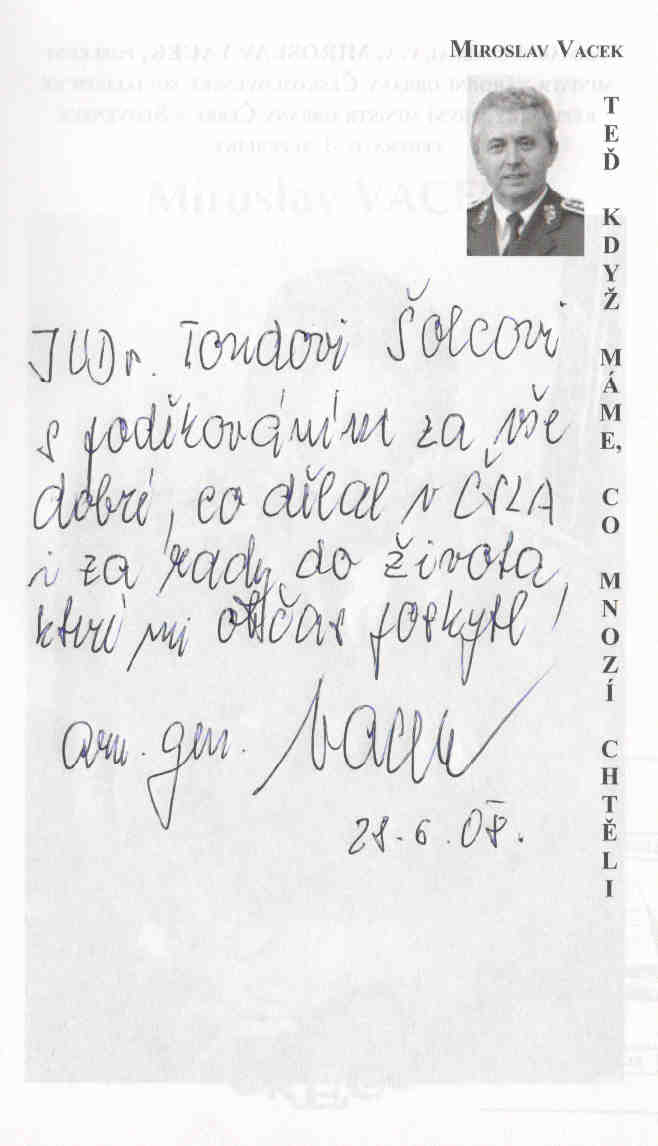 MIROSLAV VACEK
TEĎ KDYŽ MÁME, CO MNOZÍ CHTĚLI
JUDr. Tondovi Šolcovi
s poděkováním za vše
dobré, co dělal v ČSLA
i za rady do života,
které mi občas poskytl!
arm. gen. Vacek
28.6.08.